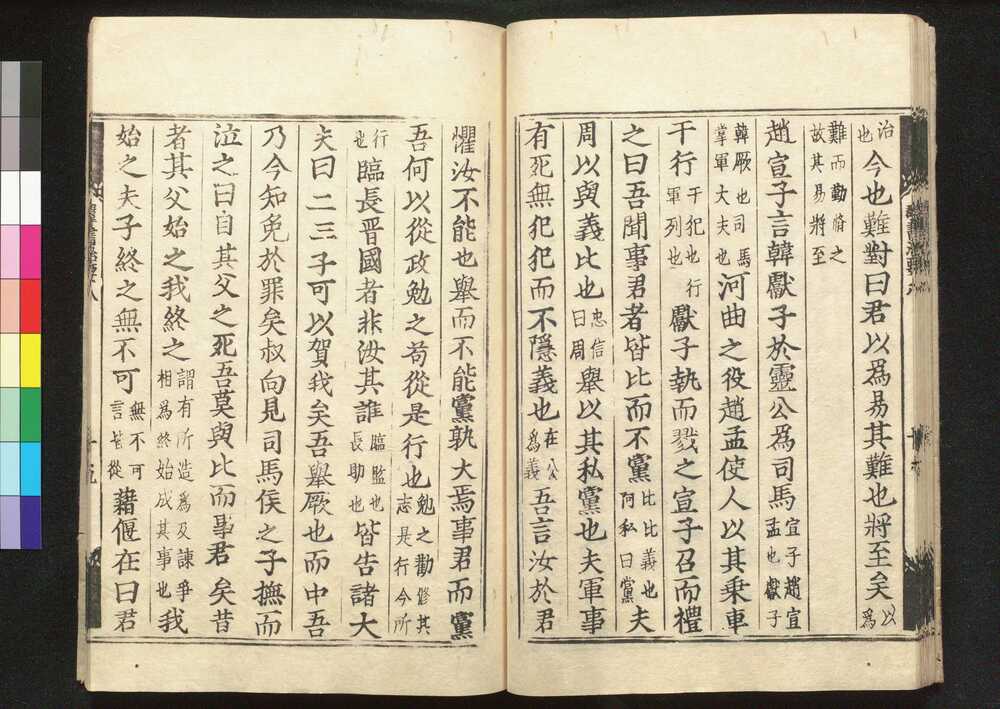 治也今也難對曰君以爲易其難也將至矣以爲
難而勤脩之故其易將至
趙宣子言韓獻子於靈公爲司馬宣子趙宣孟也獻子
韓厥也司馬掌軍大夫也河曲之役趙孟使人以其乗車
干行干犯也行軍列也獻子執而戮之宣子召而禮
之曰吾聞事君者皆比而不黨比比義也阿私曰黨夫
周以與義比也忠信曰周舉以其私黨也夫軍事
有死無犯犯而不隱義也在公爲義吾言汝於君
懼汝不能也舉而不能黨孰大焉事君而黨
吾何以從政勉之苟從是行也勉之勸修其志是行今所
行也臨長晉國者非汝其誰臨監也長助也皆告諸大
夫曰二三子可以賀我矣吾舉厥也而中吾
乃今知免於罪矣叔向見司馬侯之子撫而
泣之曰自其父之死吾莫與比而事君矣昔
者其父始之我終之謂有所造爲及諫爭相爲終始成其事也我
始之夫子終之無不可無不可言皆從藉偃在曰君